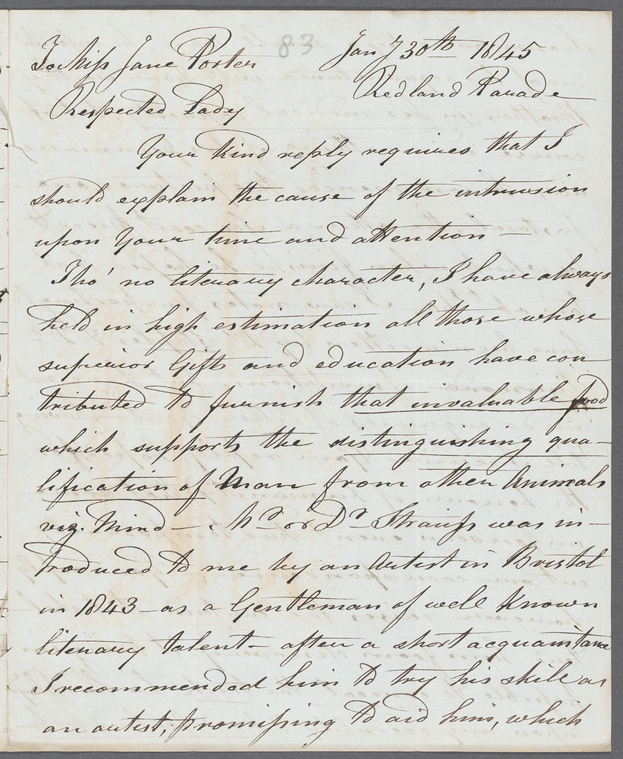 To Miss Jane Porter 83 Jany 30th 1845
Redland Parade
Respected Lady
Your kind reply requires that I
should explain the cause of the intrusion
upon Your time and attention —
Tho' no literary character, I have always
held in high estimation all those whose
superior Gifts and education have con
tributed to furnish that invaluable food
which supports the distinguishing qua-
lification of Man from other Animals
viz. Mind — Mr or Dr Strauss was in-
troduced to me by an Artist in Bristol
in 1843 — as a Gentleman of well known
literary talent — after a short acquaintance
I recommended him to try his skill as
an artist, promising to aid him, which